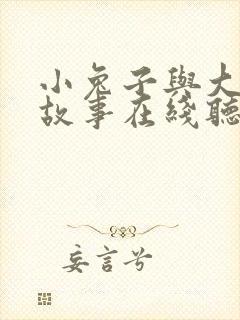 小兔子與大
故事在綫聽
妄言兮